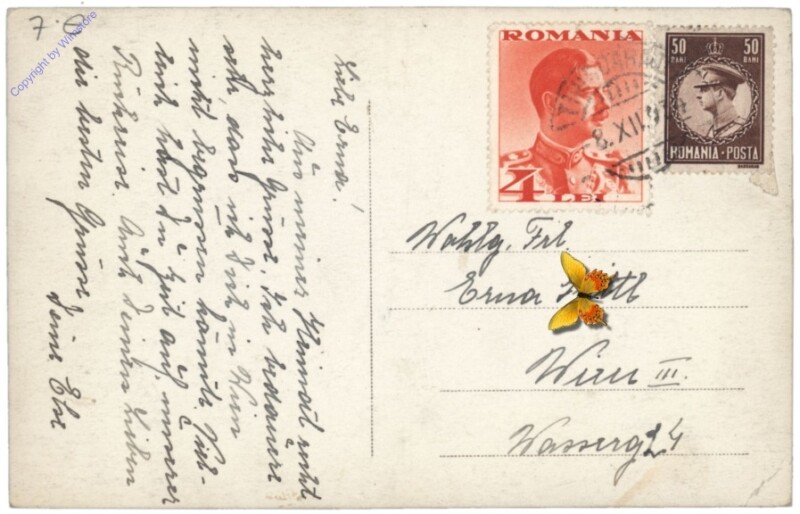 Copyright by WinStore
Liebe Erna!
Aus meiner Heimat recht
herzliche Grüsse. Ich bedauere
sehr, dass ich Dich in Wien
nicht begrüssen konnte. Viel-
leicht hast Du Zeit auf unserer
Rückreise. Auch Deinen Lieben
die besten Grüsse
Deine Else
ROMANIA
4 LEI
50 50
BANI BANI
ROMANIA-POSTA
8. XII.
Wohlg. Frl
Erna
Wien III.
Wasserg 24